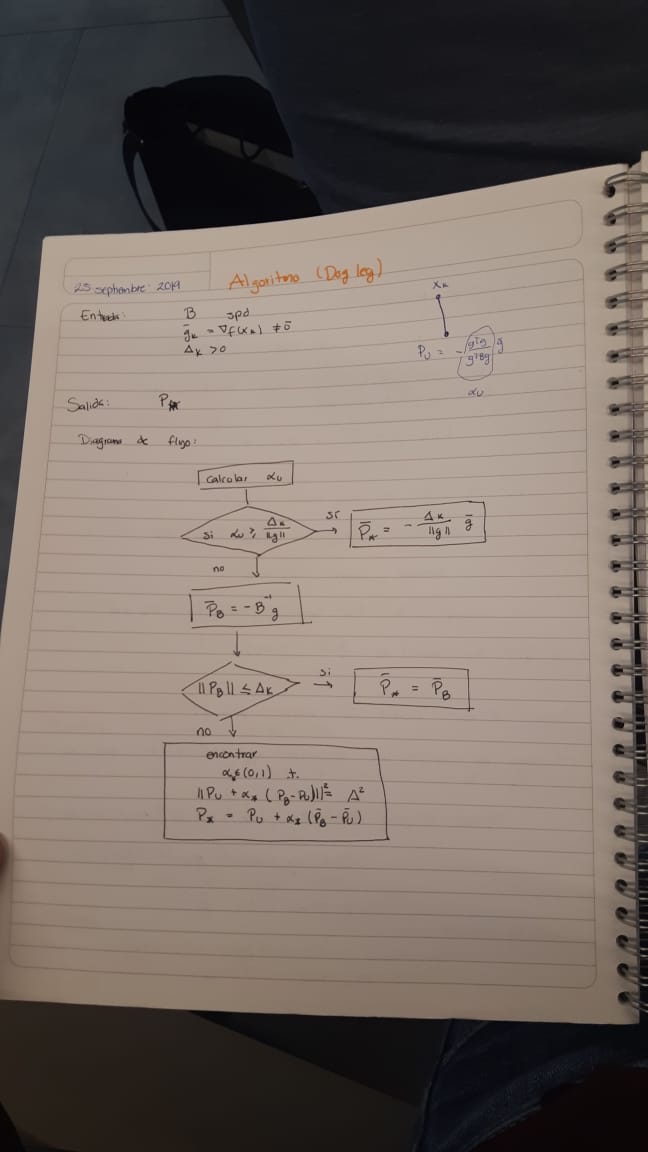 25 septiembre 2019
Algoritmo (Dog leg)
Entrada: B spd
ḡₖ = ∇f(xₖ) ≠ 0̄
Δₖ > 0
xₖ
Pᵤ = -(gᵀg / gᵀBg) ḡ
αᵤ
Salida: P*
Diagrama de flujo:
Calcular αᵤ
si αᵤ ≥ Δₖ / ||g||
si
P̄* = - Δₖ / ||g|| ḡ
no
P̄_B = -B⁻¹g
||P_B|| ≤ Δₖ
si
P̄* = P̄_B
no
encontrar
α* ∈ (0,1) t.
||Pᵤ + α* (P_B - Pᵤ)||² = Δ²
P* = Pᵤ + α* (P̄_B - P̄ᵤ)